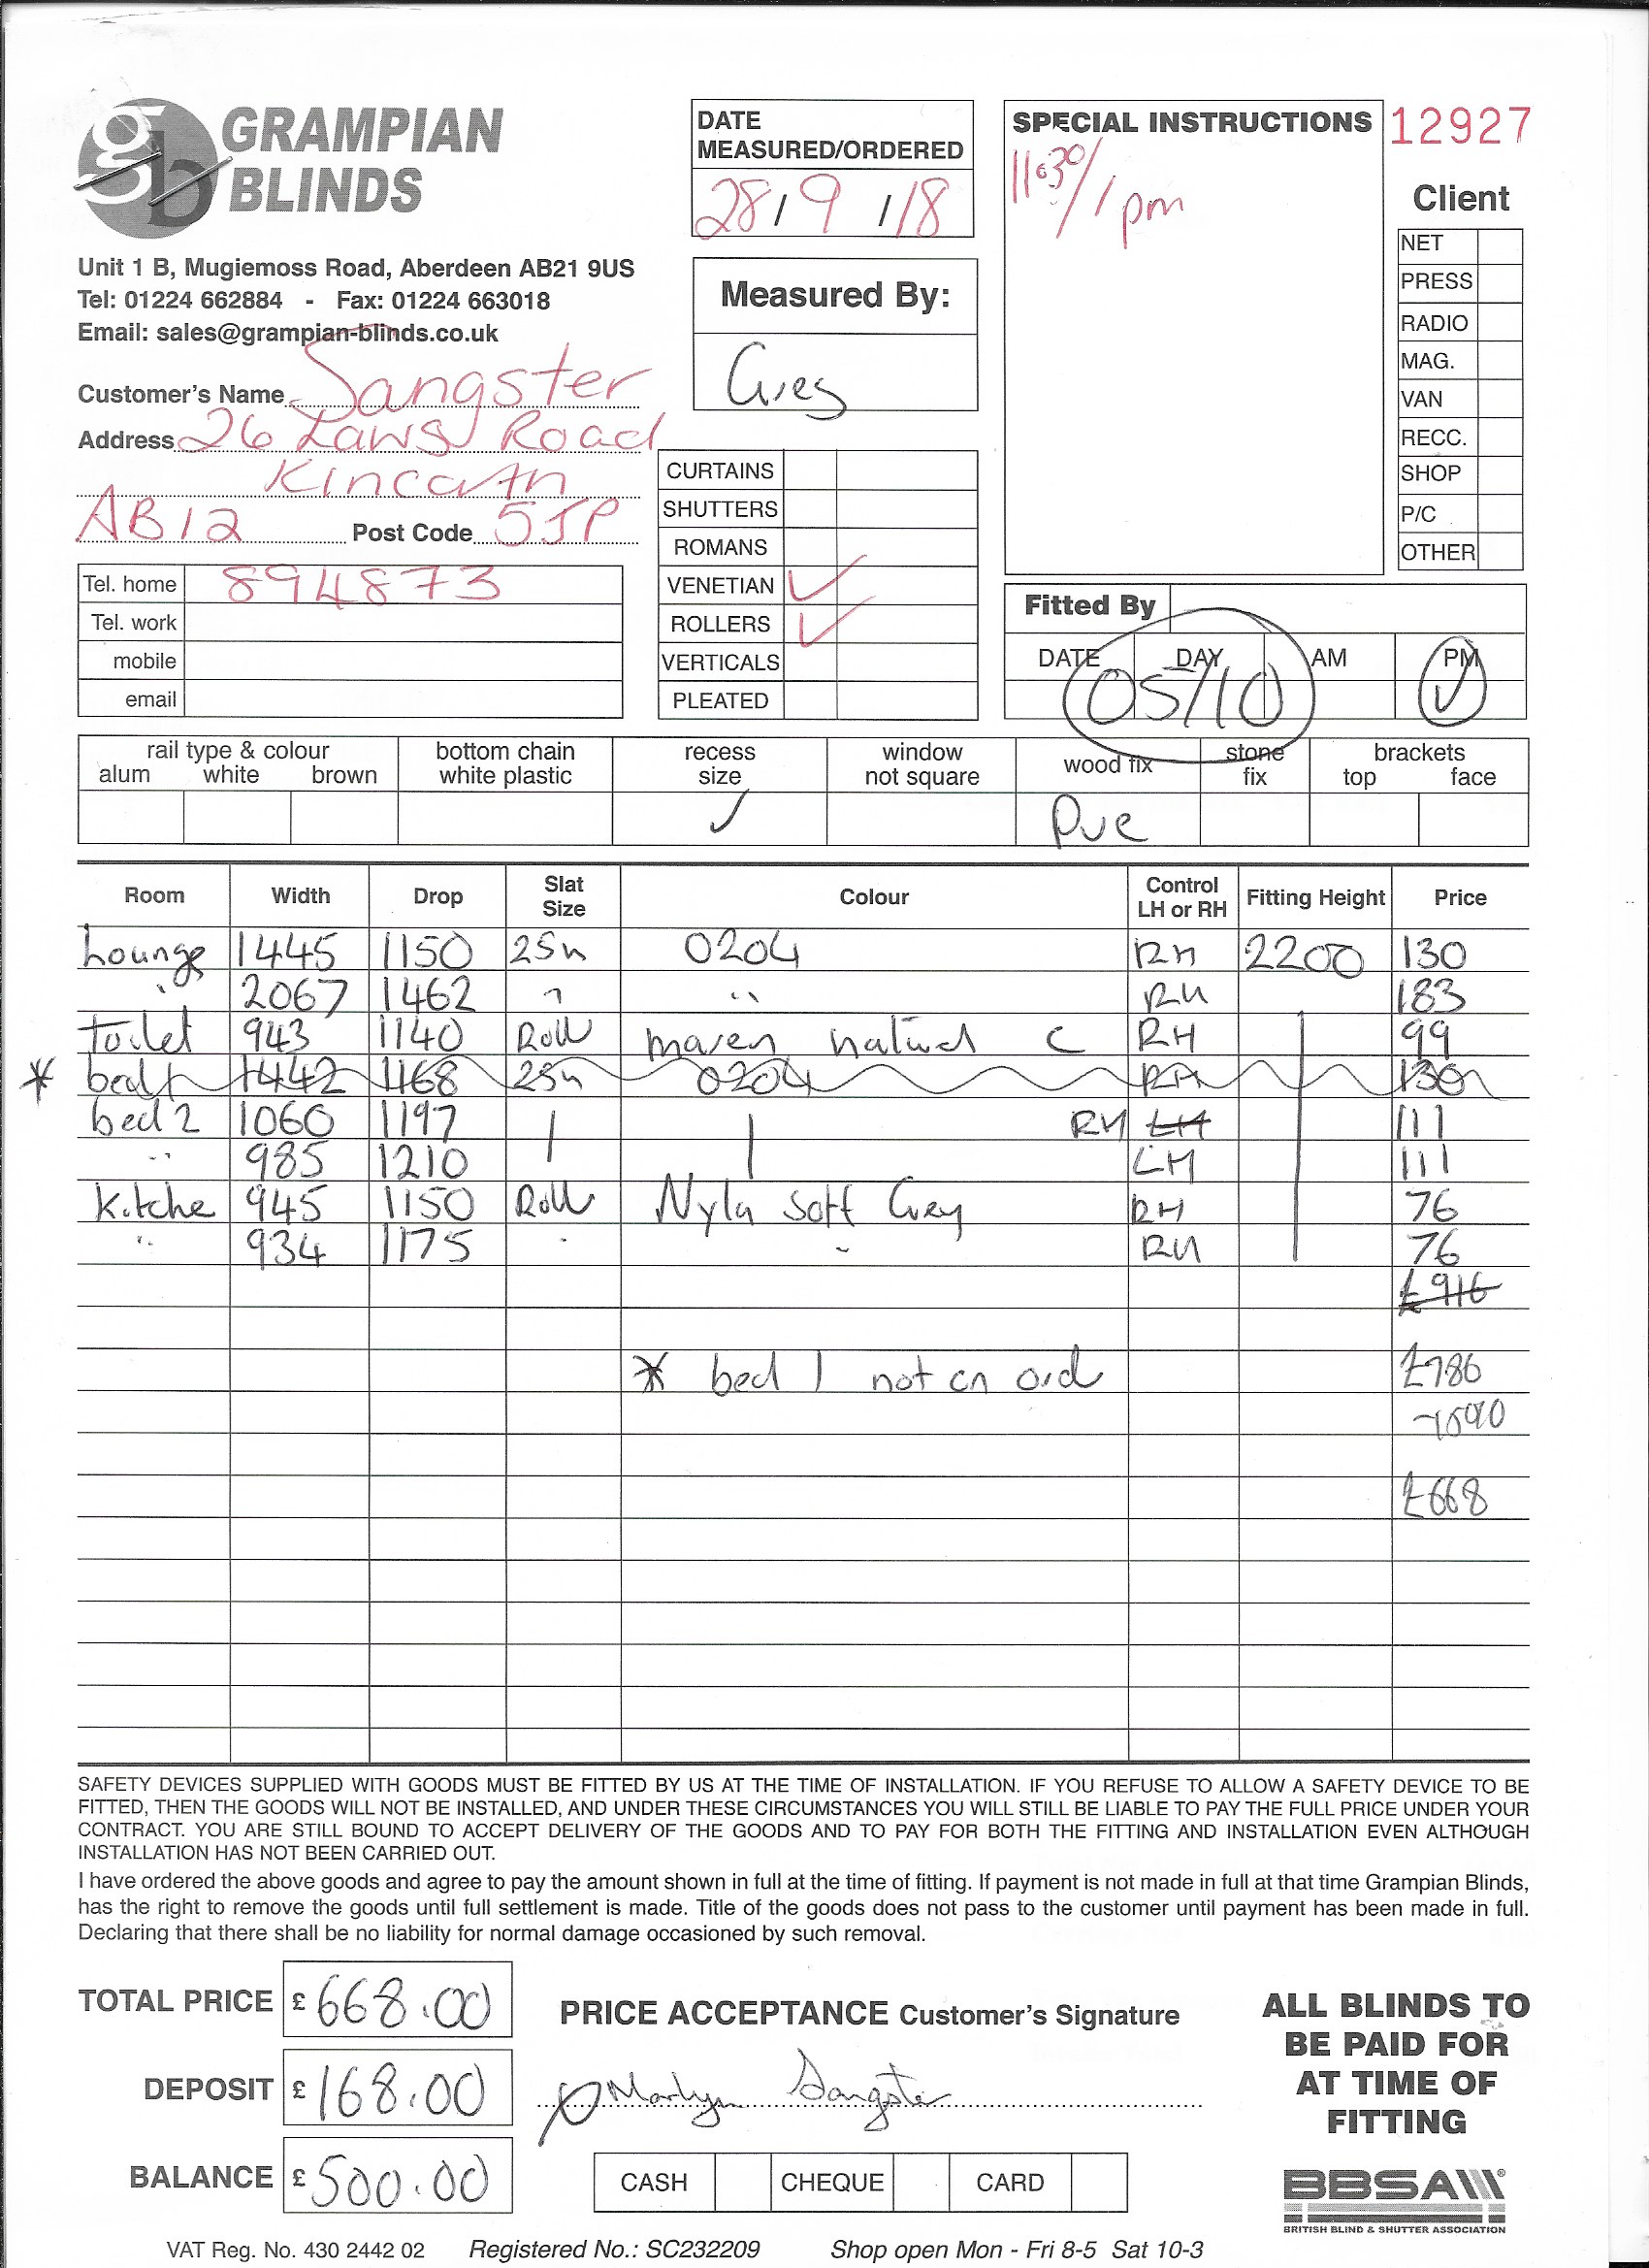 GRAMPIAN
BLINDS
gb
Unit 1 B, Mugiemoss Road, Aberdeen AB21 9US
Tel: 01224 662884 - Fax: 01224 663018
Email: sales@grampian-blinds.co.uk
Customer's Name Sangster
Address 26 Laws Road
Kincorth
AB12 Post Code 5JP
Tel. home 894873
Tel. work
mobile
email
DATE
MEASURED/ORDERED
28/9/18
Measured By:
Greg
CURTAINS
SHUTTERS
ROMANS
VENETIAN ✓
ROLLERS ✓
VERTICALS
PLEATED
SPECIAL INSTRUCTIONS
11:30/1pm
12927
Client
NET
PRESS
RADIO
MAG.
VAN
RECC.
SHOP
P/C
OTHER
Fitted By
DATE DAY AM PM
05/10 ✓
rail type & colour bottom chain recess window wood fix stone brackets
alum white brown white plastic size not square fix top face
✓ PVC
Room Width Drop Slat Size Colour Control LH or RH Fitting Height Price
Lounge 1445 1150 25m 0204 RH 2200 130
" 2067 1462 " " RH 183
Toilet 943 1140 Roll natural C RH 99
* bed 1 1442 1168 25m 0204 RH 130
bed 2 1060 1197 RH LH 111
" 985 1210 LH 111
Kitche 945 1150 Roll Nyla soft Grey RH 76
" 934 1175 " " RH 76
£916
* bed 1 not on ord £786
£668
SAFETY DEVICES SUPPLIED WITH GOODS MUST BE FITTED BY US AT THE TIME OF INSTALLATION. IF YOU REFUSE TO ALLOW A SAFETY DEVICE TO BE
FITTED, THEN THE GOODS WILL NOT BE INSTALLED, AND UNDER THESE CIRCUMSTANCES YOU WILL STILL BE LIABLE TO PAY THE FULL PRICE UNDER YOUR
CONTRACT. YOU ARE STILL BOUND TO ACCEPT DELIVERY OF THE GOODS AND TO PAY FOR BOTH THE FITTING AND INSTALLATION EVEN ALTHOUGH
INSTALLATION HAS NOT BEEN CARRIED OUT.
I have ordered the above goods and agree to pay the amount shown in full at the time of fitting. If payment is not made in full at that time Grampian Blinds,
has the right to remove the goods until full settlement is made. Title of the goods does not pass to the customer until payment has been made in full.
Declaring that there shall be no liability for normal damage occasioned by such removal.
TOTAL PRICE £ 668.00
DEPOSIT £ 168.00
BALANCE £ 500.00
PRICE ACCEPTANCE Customer's Signature
Sangster
CASH CHEQUE CARD
ALL BLINDS TO
BE PAID FOR
AT TIME OF
FITTING
BBSA
BRITISH BLIND & SHUTTER ASSOCIATION
VAT Reg. No. 430 2442 02 Registered No.: SC232209 Shop open Mon - Fri 8-5 Sat 10-3